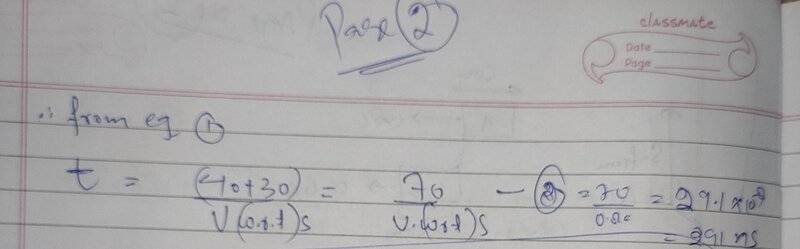 Page 2
classmate
Date
Page
∴ from eq ①
t = (40+30) / V(o.s.t)s = 70 / V.(o.s.t)s - ② = 70 / 0.8c = 29.1 × 10⁸
= 291 ns